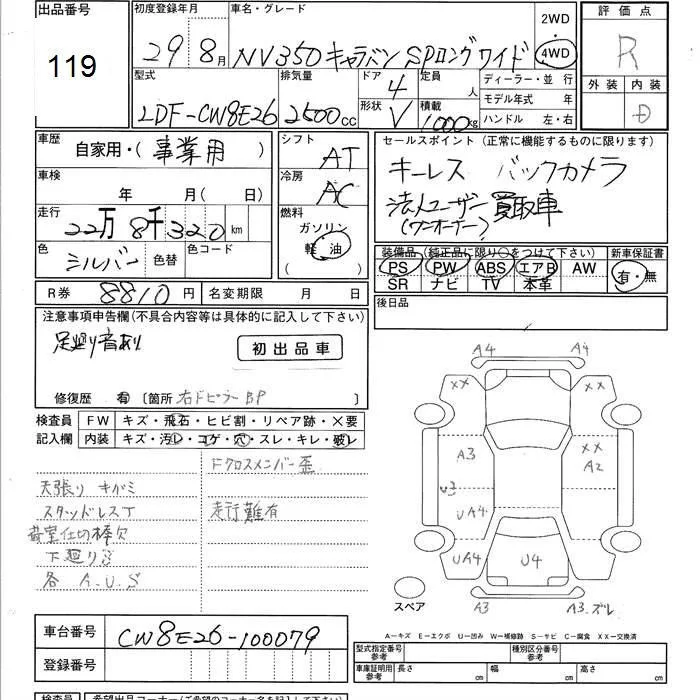 出品番号
119
初度登録年月
29 8月
車名・グレード
NV350 キャラバン SPロング ワイド
2WD
4WD
評価点
R
外装 内装
D
型式
LDF-CW8E26
排気量
2500cc
ドア
4
形状
V
定員
人
積載
1000kg
ディーラー・並行
モデル年式 年
ハンドル 左・右
車歴
自家用・(事業用)
車検
年 月( 日)
走行
22万8千320km
色
シルバー
色替
色コード
シフト
AT
冷房
AC
燃料
ガソリン
軽油
( )
セールスポイント(正常に機能するものに限ります)
キーレス バックカメラ
法人ユーザー買取車
(ワンオーナー)
装備品(純正品に限り○をつけて下さい)
PS PW ABS エアB AW
SR ナビ TV 本革
新車保証書
有・無
R券 8810円
名変期限 月 日
後日品
注意事項申告欄(不具合内容等は具体的に記入して下さい)
足廻り音あり
初出品車
修復歴 有 〔箇所 右Fピラー BP 〕
検査員
記入欄
FW キズ・飛石・ヒビ割・リペア跡・×要
内装 キズ・汚レ・コゲ・穴・スレ・キレ・破レ
天張り キバミ
スタッドレスT
荷室仕切棒欠
下廻りS
各 A.U.S
Fクロスメンバー歪
走行難有
A4 A4
XX XX
A3
XX
A2
U3
UA4
UA4 U4
A3 A3.ズレ
スペア
A-キズ E-エクボ U-凹み W-補修跡 S-サビ C-腐食 XX-交換済
車台番号
CW8E26-100079
登録番号
型式指定番号
参考
種別区分番号
参考
車庫証明用
参考
長さ cm 幅 cm 高さ cm
検査員
希望出品コーナー(ご希望のコーナー名を記入して下さい)